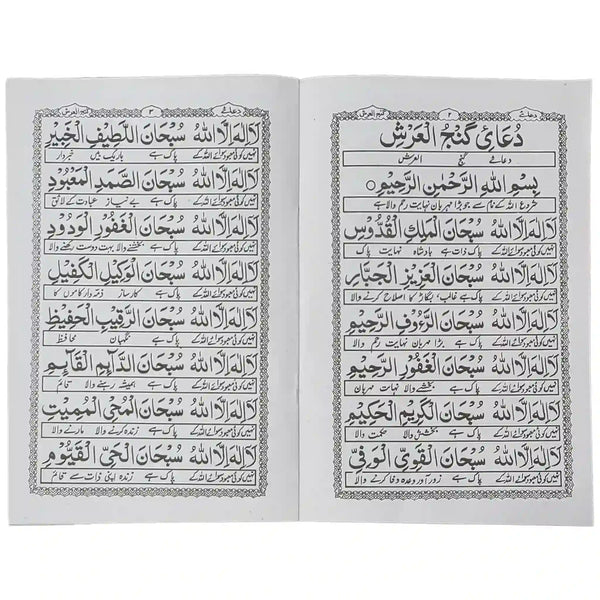 دعائے ۲ گنج العرش
دُعَائ گَنْجُ الْعَرْشِ
دعائے گنج العرش
بِسْمِ اللّٰهِ الرَّحْمٰنِ الرَّحِيْمِ
شروع اللہ کے نام سے جو بڑا مہربان نہایت رحم والا ہے
لَا اِلٰهَ اِلَّا اللّٰهُ سُبْحَانَ الْمَلِكِ الْقُدُّوْسِ
نہیں کوئی معبود سوائے اللہ کے پاک ذات ہے بادشاہ نہایت پاک
لَا اِلٰهَ اِلَّا اللّٰهُ سُبْحَانَ الْعَزِيْزِ الْجَبَّارِ
نہیں کوئی معبود سوائے اللہ کے پاک ہے غالب بگاڑ کا اصلاح کرنے والا
لَا اِلٰهَ اِلَّا اللّٰهُ سُبْحَانَ الرَّءُوْفِ الرَّحِيْمِ
نہیں کوئی معبود سوائے اللہ کے پاک ہے بڑا مہربان نہایت رحم والا
لَا اِلٰهَ اِلَّا اللّٰهُ سُبْحَانَ الْغَفُوْرِ الرَّحِيْمِ
نہیں کوئی معبود سوائے اللہ کے پاک ہے بخشنے والا نہات مہربان
لَا اِلٰهَ اِلَّا اللّٰهُ سُبْحَانَ الْكَرِيْمِ الْحَكِيْمِ
نہیں کوئی معبود سوائے اللہ کے پاک ہے بخشش والا حکمت والا
لَا اِلٰهَ اِلَّا اللّٰهُ سُبْحَانَ الْقَوِيِّ الْوَفِيِّ
نہیں کوئی معبود سوائے اللہ کے پاک ہے زور آور وعدہ وفا کرنے والا
دعائے ۳ گنج العرش
لَا اِلٰهَ اِلَّا اللّٰهُ سُبْحَانَ اللَّطِيْفِ الْخَبِيْرِ
نہیں کوئی معبود سوائے اللہ کے پاک ہے باریک بیں خبردار
لَا اِلٰهَ اِلَّا اللّٰهُ سُبْحَانَ الصَّمَدِ الْمَعْبُوْدِ
نہیں کوئی معبود سوائے اللہ کے پاک ہے بے نیاز عبادت کے لائق
لَا اِلٰهَ اِلَّا اللّٰهُ سُبْحَانَ الْغَفُوْرِ الْوَدُوْدِ
نہیں کوئی معبود سوائے اللہ کے پاک ہے بخشنے والا بہت دوست رکھنے والا
لَا اِلٰهَ اِلَّا اللّٰهُ سُبْحَانَ الْوَكِيْلِ الْكَفِيْلِ
نہیں کوئی معبود سوائے اللہ کے پاک ہے کارساز ذمہ دار کاموں کا
لَا اِلٰهَ اِلَّا اللّٰهُ سُبْحَانَ الرَّقِيْبِ الْحَفِيْظِ
نہیں کوئی معبود سوائے اللہ کے پاک ہے نگہبان محافظ
لَا اِلٰهَ اِلَّا اللّٰهُ سُبْحَانَ الدَّآئِمِ الْقَآئِمِ
نہیں کوئی معبود سوائے اللہ کے پاک ہے ہمیشہ رہنے والا قائم
لَا اِلٰهَ اِلَّا اللّٰهُ سُبْحَانَ الْمُحْيِ الْمُمِيْتِ
نہیں کوئی معبود سوائے اللہ کے پاک ہے زندہ کرنے والا مارنے والا
لَا اِلٰهَ اِلَّا اللّٰهُ سُبْحَانَ الْحَيِّ الْقَيُّوْمِ
نہیں کوئی معبود سوائے اللہ کے پاک ہے زندہ اپنی ذات سے قائم